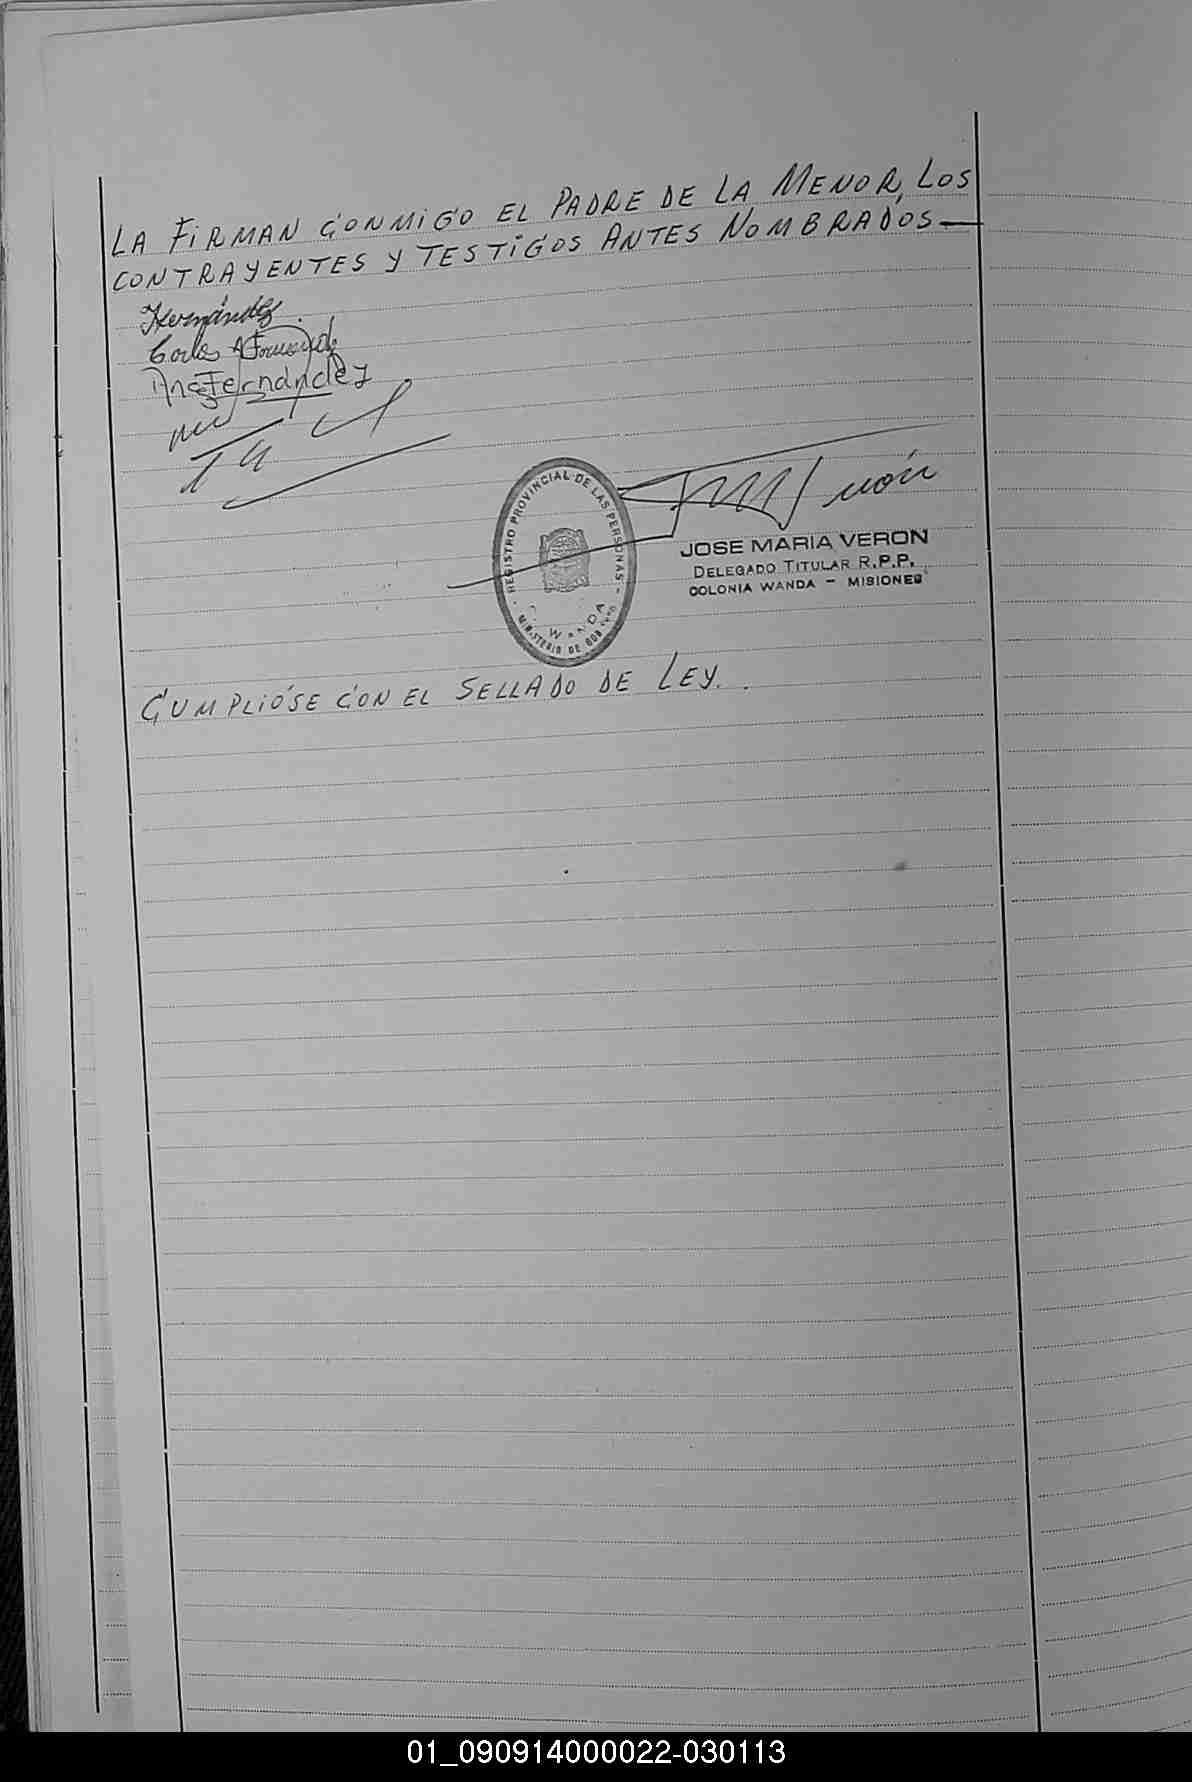 LA FIRMAN CONMIGO EL PADRE DE LA MENOR, LOS
CONTRAYENTES Y TESTIGOS ANTES NOMBRADOS—
Hernández
Ana Fernández
REGISTRO PROVINCIAL DE LAS PERSONAS
WANDA
MINISTERIO DE GOBIERNO
JOSE MARIA VERON
DELEGADO TITULAR R.P.P.
COLONIA WANDA - MISIONES
CUMPLIÓSE CON EL SELLADO DE LEY.
01_090914000022-030113